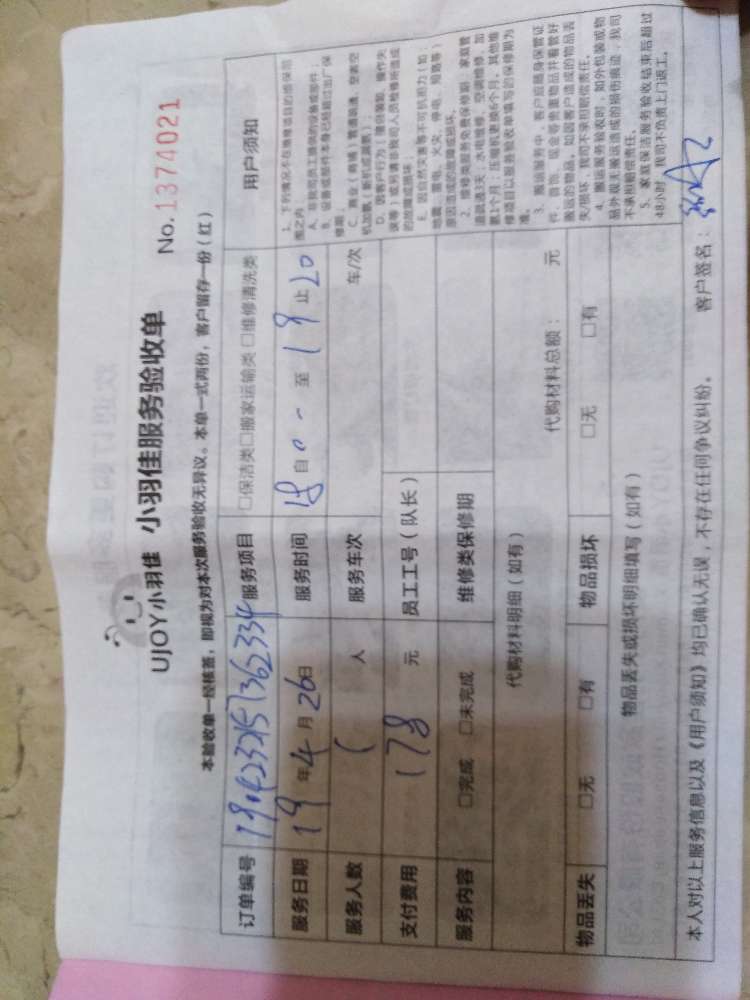 UJOY小羽佳 小羽佳服务验收单
No. 1374021
本验收单一经核签，即视为对本次服务验收无异议。本单一式两份，客户留存一份（红）
订单编号
服务项目 □保洁类□搬家运输类 □维修清洗类
服务日期 19 年 4 月 26 日
服务时间 自 至 19 止 20
服务人数 人
服务车次 车/次
支付费用 178 元
员工工号（队长）
服务内容 □完成 □未完成
维修类保修期
代购材料明细（如有） 代购材料总额： 元
物品丢失 □无 □有
物品损坏 □无 □有
物品丢失或损坏明细填写（如有）
用户须知
1、下列情况不在维修项目的维保范
围之内：
A、非我司员工提供的设备或部件；
B、设备或部件本身已经超过出厂保
修期；
C、商业（商铺）管道疏通、空调空
机加氟（新机或漏氟）；
D、因客户行为（擅自装卸、操作失
误等）或另请非我司人员检修所造成
的故障或损坏；
E、因自然灾害等不可抗拒力（如：
地震、雷电、火灾、停电、短路等）
原因造成的故障或损坏。
2、维修类服务免费保修期：家庭管
道疏通3天，水电维修、空调维修、加
氟1个月；压缩机更换6个月，其他维
修项目以服务验收单填写的保修期为
准。
3、搬运服务中，客户应随身保管证
件、首饰、现金等贵重物品并看管好
搬运的物品。如因客户造成的物品丢
失/损坏，我司不承担赔偿责任。
4、搬运服务验收时，如外包装或物
品外观无搬运造成的损伤痕迹，我司
不承担赔偿责任。
5、家庭保洁服务验收结束后超过
48小时，我司不负责上门返工。
本人对以上服务信息以及《用户须知》均已确认无误，不存在任何争议纠纷。 客户签名：